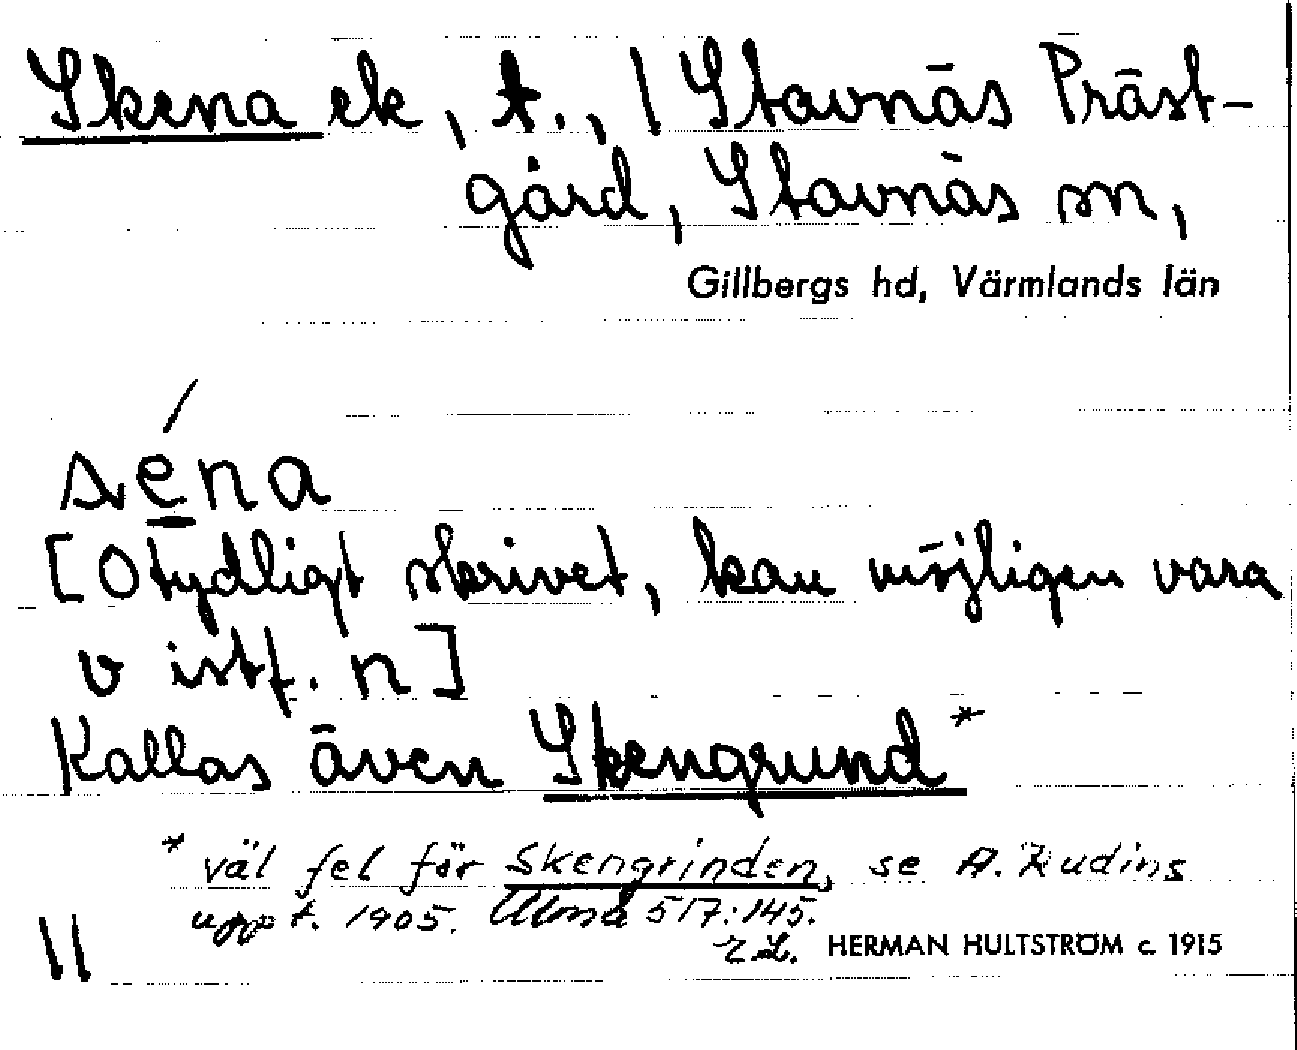 Skena ek, t., / Stavnäs Präst-
gård, Stavnäs sn,
Gillbergs hd, Värmlands län
séna
[Otydligt skrivet, kan möjligen vara
v istf. n]
Kallas även Skengrund*
* väl fel för Skengrinden, se A. Rudins
uppt. 1905. 517:145.
HERMAN HULTSTRÖM c. 1915